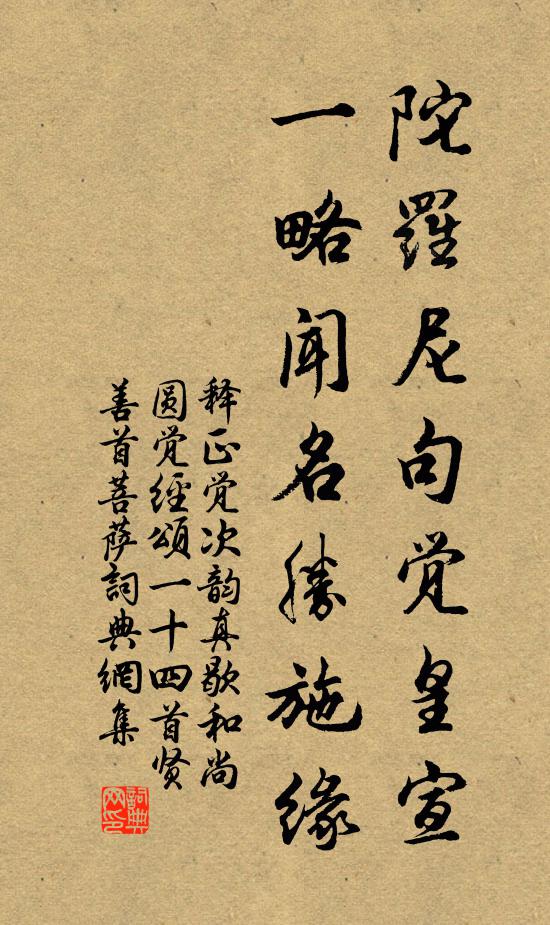 陀羅尼句觉皇宣
一略闻名勝施緣
释正觉次韵真歇和尚
圆觉經頌一十四首贤
善首菩萨詞典網集
詞典网印